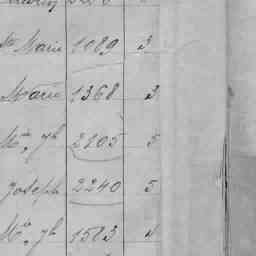 Ste Marie 1089 3
Marie 1368 3
Min, Jh 2205 5
Joseph 2240 5
Min, Jh 1583 4